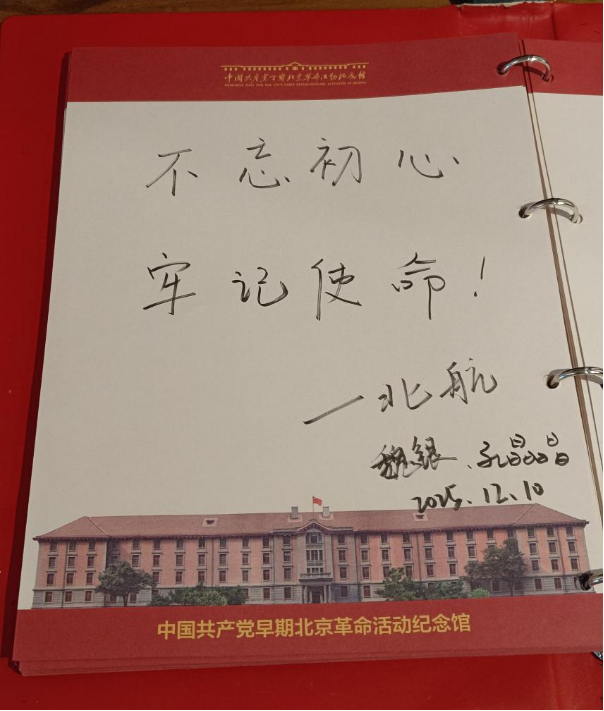 中国共产党早期北京革命活动纪念馆
不忘初心
牢记使命！
一北航
魏银、孔晶晶
2025.12.10
中国共产党早期北京革命活动纪念馆